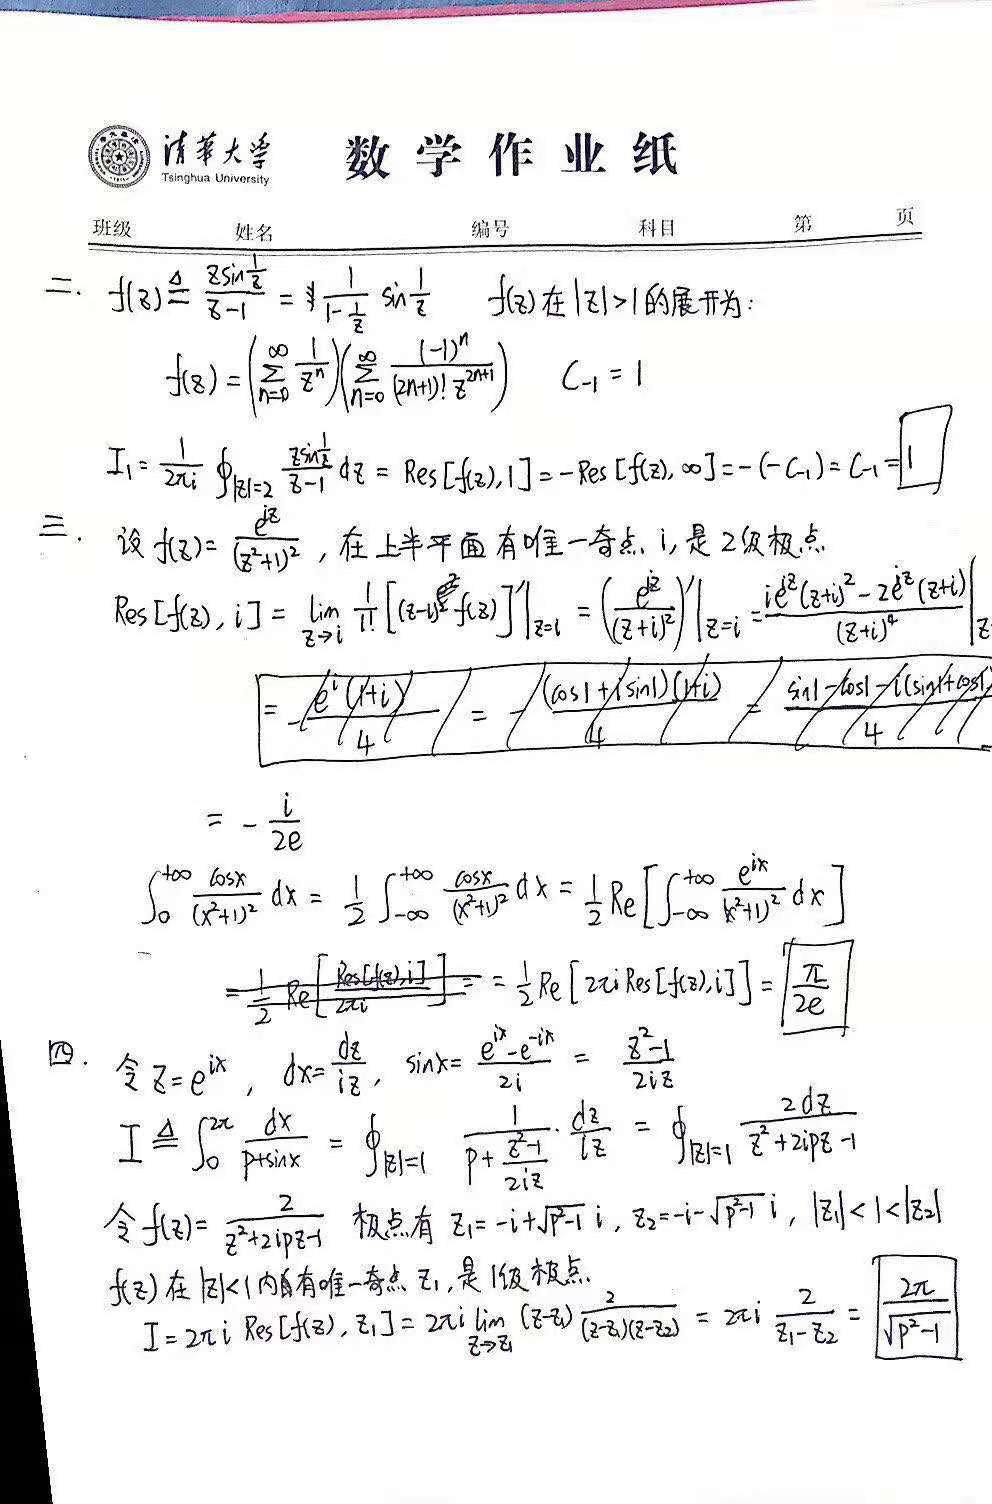 清華大学 数学作业纸
Tsinghua University
班级 姓名 编号 科目 第 页
二. f(z) ≜ \frac{z sin\frac{1}{z}}{z-1} = \frac{1}{1-\frac{1}{z}} sin\frac{1}{z} f(z)在|z|>1的展开为:
f(z) = (\sum_{n=0}^{∞} \frac{1}{z^n})(\sum_{n=0}^{∞} \frac{(-1)^n}{(2n+1)! z^{2n+1}}) C_{-1} = 1
I_1 = \frac{1}{2πi} ∮_{|z|=2} \frac{z sin\frac{1}{z}}{z-1} dz = Res[f(z),1] = -Res[f(z),∞] = -(-C_{-1}) = C_{-1} = 1
三. 设f(z) = \frac{e^{iz}}{(z^2+1)^2}, 在上半平面有唯一奇点i, 是2级极点
Res[f(z), i] = \lim_{z→i} \frac{1}{1!} [(z-i)^2 f(z)]'|_{z=i} = (\frac{e^{iz}}{(z+i)^2})'|_{z=i} = \frac{ie^{iz}(z+i)^2 - 2e^{iz}(z+i)}{(z+i)^4}|
= -\frac{e^i(1+i)}{4} = -\frac{(cos1+isin1)(1+i)}{4} = \frac{sin1-cos1-i(sin1+cos1)}{4}
= -\frac{i}{2e}
∫_0^{+∞} \frac{cosx}{(x^2+1)^2} dx = \frac{1}{2} ∫_{-∞}^{+∞} \frac{cosx}{(x^2+1)^2} dx = \frac{1}{2} Re[∫_{-∞}^{+∞} \frac{e^{ix}}{(x^2+1)^2} dx]
= \frac{1}{2} Re[\frac{Res[f(z),i]}{2πi}] = = \frac{1}{2} Re[2πi Res[f(z),i]] = \frac{π}{2e}
四. 令z=e^{ix}, dx=\frac{dz}{iz}, sinx=\frac{e^{ix}-e^{-ix}}{2i} = \frac{z^2-1}{2iz}
I ≜ ∫_0^{2π} \frac{dx}{p+sinx} = ∮_{|z|=1} \frac{1}{p+\frac{z^2-1}{2iz}} · \frac{dz}{iz} = ∮_{|z|=1} \frac{2dz}{z^2+2ipz-1}
令f(z) = \frac{2}{z^2+2ipz-1} 极点有 z_1=-i+\sqrt{p^2-1} i, z_2=-i-\sqrt{p^2-1} i, |z_1|<1<|z_2|
f(z)在|z|<1内有唯一奇点z_1, 是1级极点.
I = 2πi Res[f(z), z_1] = 2πi \lim_{z→z_1} (z-z_1) \frac{2}{(z-z_1)(z-z_2)} = 2πi \frac{2}{z_1-z_2} = \frac{2π}{\sqrt{p^2-1}}